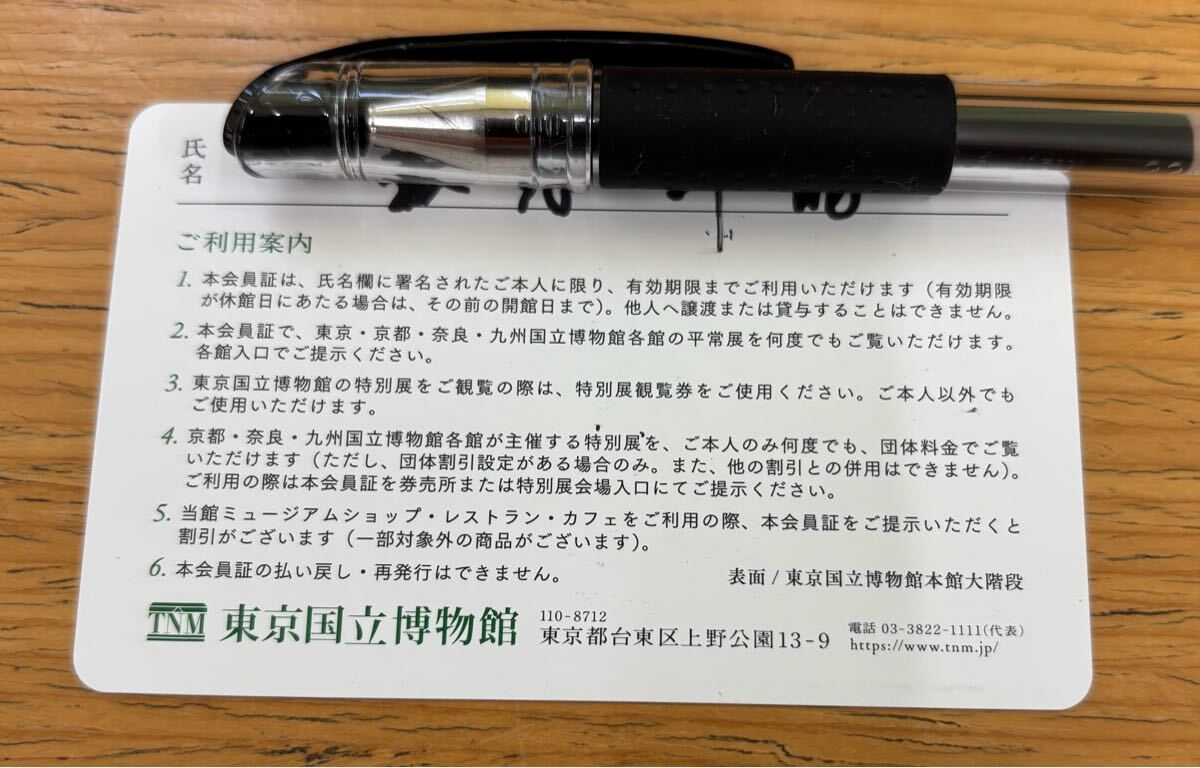 氏名
ご利用案内
1. 本会員証は、氏名欄に署名されたご本人に限り、有効期限までご利用いただけます（有効期限
が休館日にあたる場合は、その前の開館日まで）。他人へ譲渡または貸与することはできません。
2. 本会員証で、東京・京都・奈良・九州国立博物館各館の平常展を何度でもご覧いただけます。
各館入口でご提示ください。
3. 東京国立博物館の特別展をご観覧の際は、特別展観覧券をご使用ください。ご本人以外でも
ご使用いただけます。
4. 京都・奈良・九州国立博物館各館が主催する特別展を、ご本人のみ何度でも、団体料金でご覧
いただけます（ただし、団体割引設定がある場合のみ。また、他の割引との併用はできません）。
ご利用の際は本会員証を券売所または特別展会場入口にてご提示ください。
5. 当館ミュージアムショップ・レストラン・カフェをご利用の際、本会員証をご提示いただくと
割引がございます（一部対象外の商品がございます）。
6. 本会員証の払い戻し・再発行はできません。
表面 / 東京国立博物館本館大階段
TNM 東京国立博物館
110-8712
東京都台東区上野公園13-9
電話 03-3822-1111（代表）
https://www.tnm.jp/